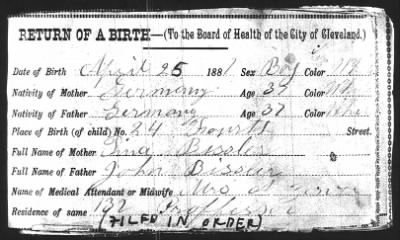 RETURN OF A BIRTH—(To the Board of Health of the City of Cleveland.)
Date of Birth April 25 1881 Sex Boy Color
Nativity of Mother Germany Age 37 Color Whi
Nativity of Father Germany Age 37 Color Whi
Place of Birth (of child) No. 24 Street.
Full Name of Mother
Full Name of Father John
Name of Medical Attendant or Midwife Mrs
Residence of same 137
(FILED IN ORDER)